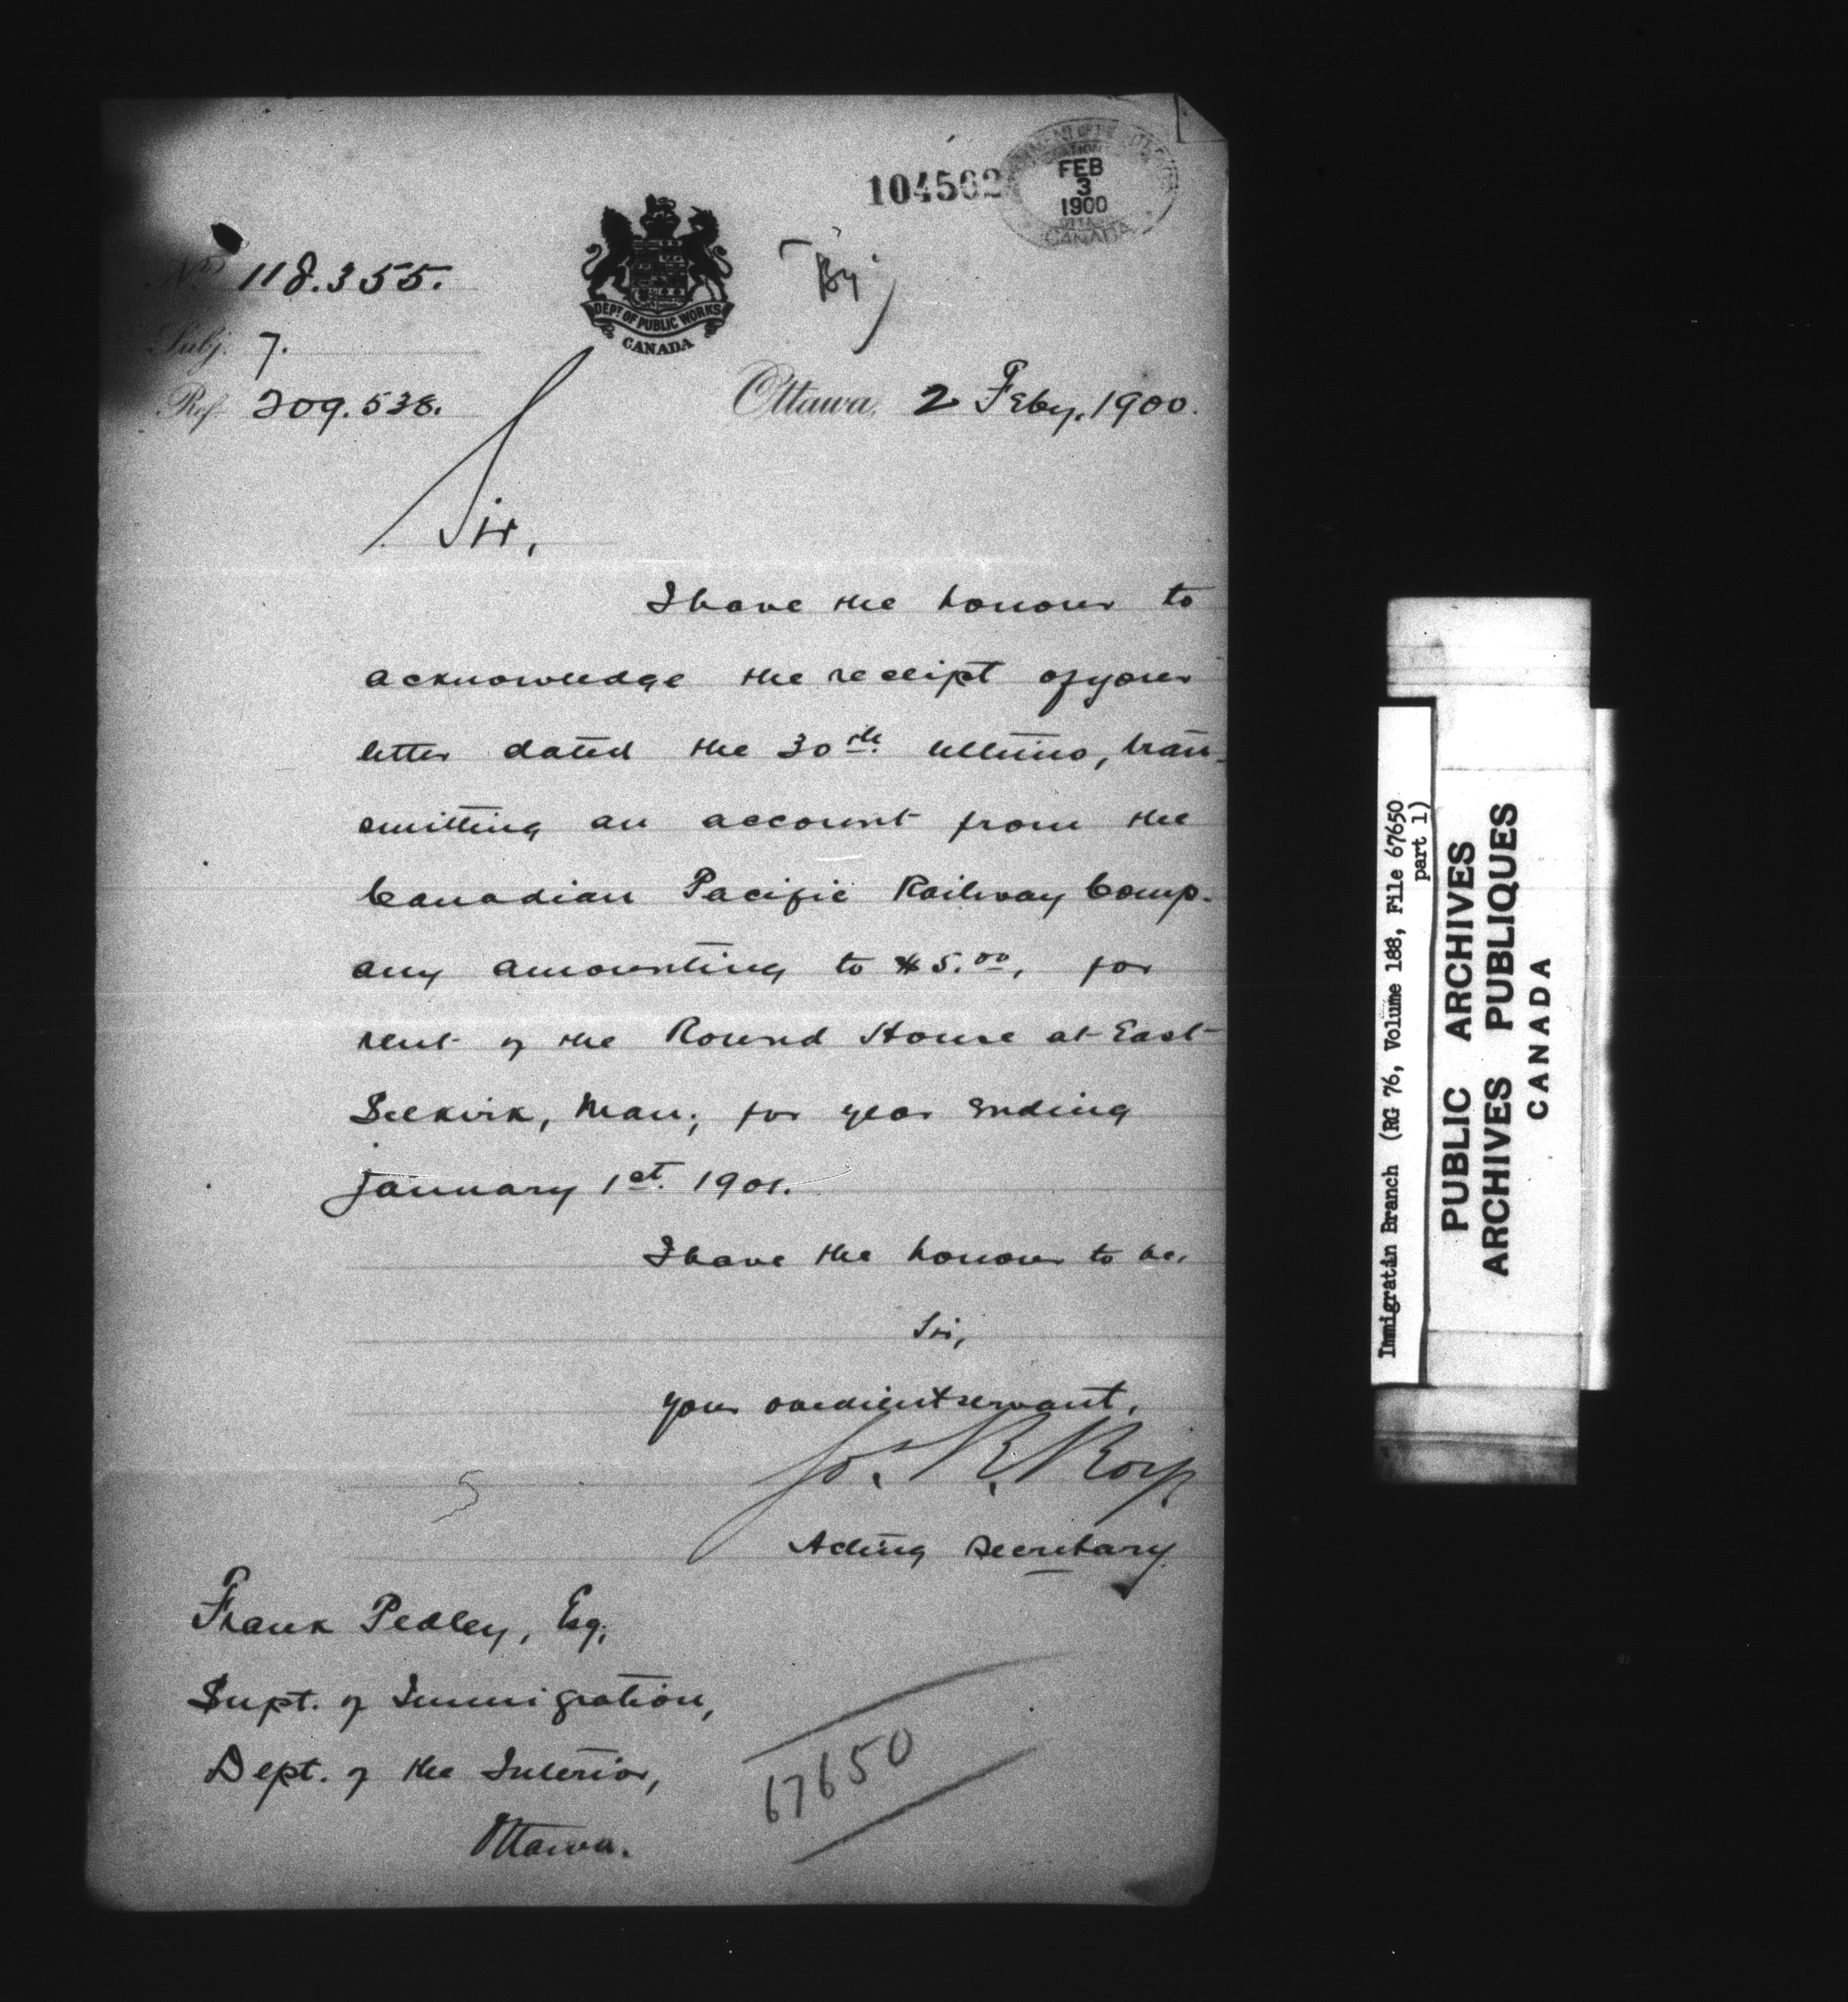 104562
FEB
3
1900
OTTAWA
CANADA
No. 118.355.
DEPT OF PUBLIC WORKS
CANADA
By
Subj. 7.
Ref. 209.538.
Ottawa, 2 Feby. 1900.
Sir,
I have the honour to
acknowledge the receipt of your
letter dated the 30th ultimo, tran-
smitting an account from the
Canadian Pacific Railway Comp-
any amounting to $5.00, for
rent of the Round House at East
Selkirk, Man; for year ending
January 1st. 1901.
I have the honour to be,
Sir,
your obedient servant,
Jos. R. Roy
Acting Secretary.
Frank Pedley, Esq;
Supt. of Immigration,
Dept. of the Interior,
Ottawa.
67650
Immigratin Branch (RG 76, Volume 188, File 67650
part 1)
PUBLIC ARCHIVES
ARCHIVES PUBLIQUES
CANADA